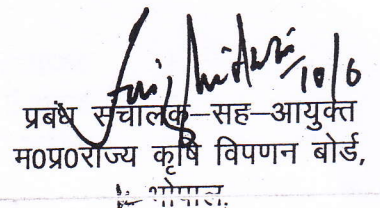 10/6
प्रबंध संचालक–सह–आयुक्त
म0प्र0राज्य कृषि विपणन बोर्ड,
भोपाल.